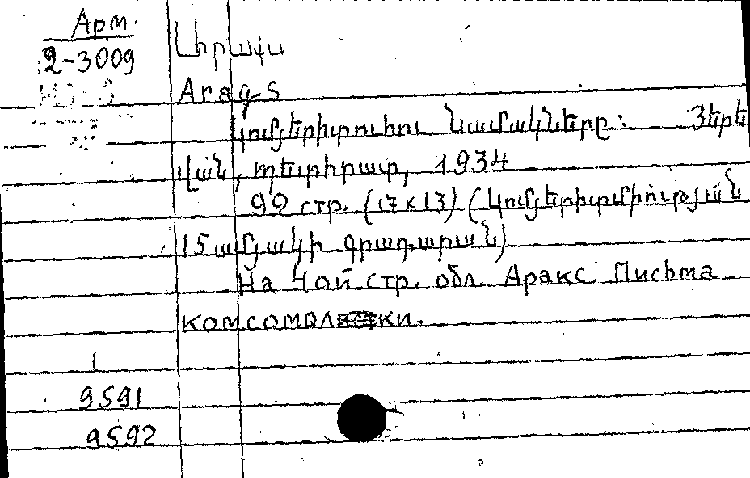 Арм.
2-3009
Արաքս
Arag-s
կոմյերիտուհու նամակները: Յերե
վան, պետհրատ, 1934
92 стр. (17x13) (կոմյերիտմիության
15 ամյակի գրադարան)
На 4ой стр. обл. Аракс Письма
комсомолки.
1
9591
9592